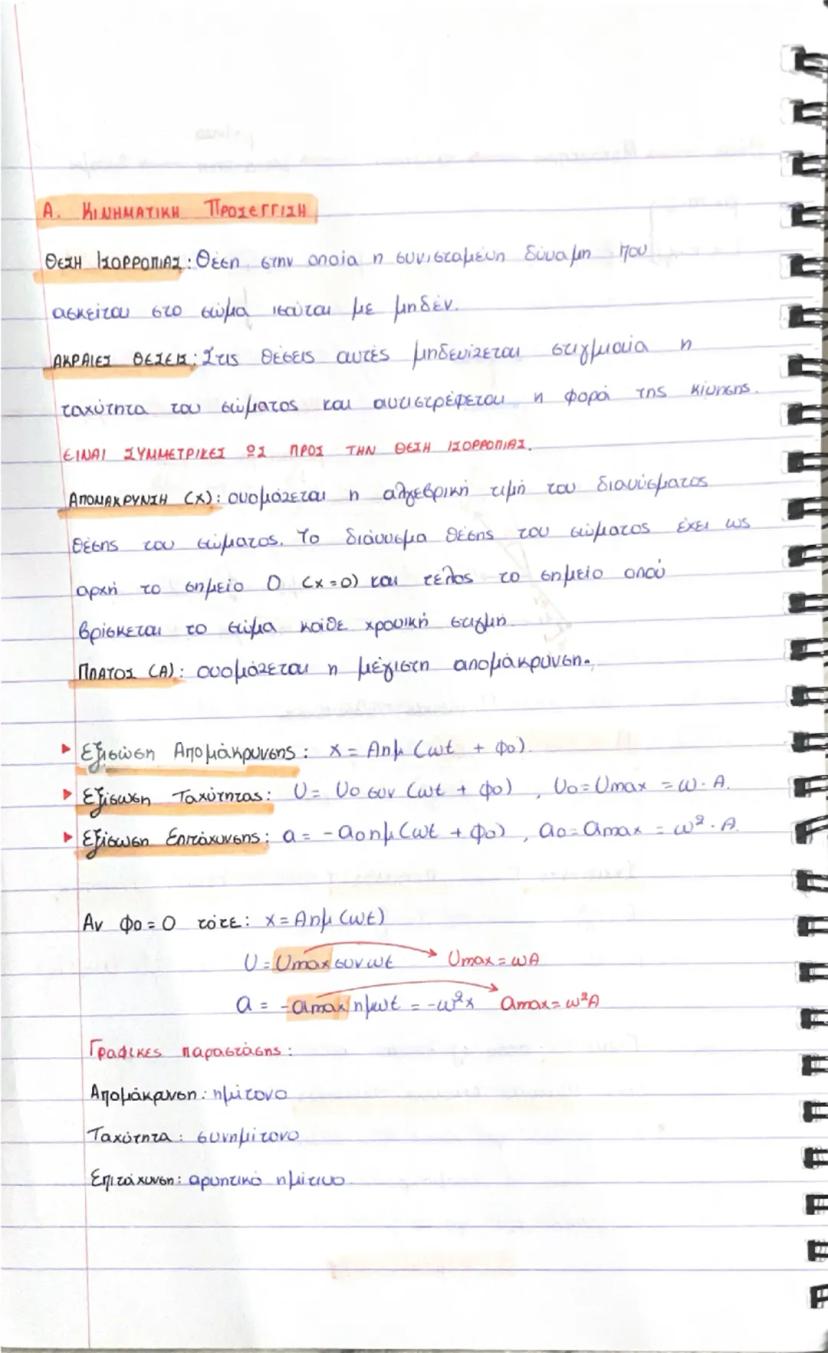 Α. ΚΙΝΗΜΑΤΙΚΗ ΠΡΟΣΕΓΓΙΣΗ
ΘΕΣΗ ΙΣΟΡΡΟΠΙΑΣ: Θέση στην οποία η συνισταμένη δύναμη που
ασκείται στο σώμα ισούται με μηδέν.
ΑΚΡΑΙΕΣ ΘΕΣΕΙΣ: Στις θέσεις αυτές μηδενίζεται στιγμιαία η
ταχύτητα του σώματος και αντιστρέφεται η φορά της κίνησης.
ΕΙΝΑΙ ΣΥΜΜΕΤΡΙΚΕΣ ΩΣ ΠΡΟΣ ΤΗΝ ΘΕΣΗ ΙΣΟΡΡΟΠΙΑΣ.
ΑΠΟΜΑΚΡΥΝΣΗ (x): ονομάζεται η αλγεβρική τιμή του διανύσματος
θέσης του σώματος. Το διάνυσμα θέσης του σώματος έχει ως
αρχή το σημείο Ο (x=0) και τέλος το σημείο οπού
βρίσκεται το σώμα κάθε χρονική στιγμή.
ΠΛΑΤΟΣ (Α): ονομάζεται η μέγιστη απομάκρυνση.
▸ Εξισώση Απομάκρυνσης: x = Aημ (ωt + φ0).
▸ Εξίσωση Ταχύτητας: υ = υ0 συν (ωt + φ0), υ0 = υmax = ω · A.
▸ Εξίσωση Επιτάχυνσης: a = -a0 ημ (ωt + φ0), a0 = amax = ω² · A.
Αν φ0 = 0 τότε: x = Aημ (ωt)
υ = υmax συν ωt → υmax = ωA
a = -amax ημωt = -ω²x → amax = ω²A
Γραφικες παραστάσης:
Απομάκρυνση: ημίτονο
Ταχύτητα: συνημίτονο
Επιτάχυνση: αρνητικό ημίτινο.